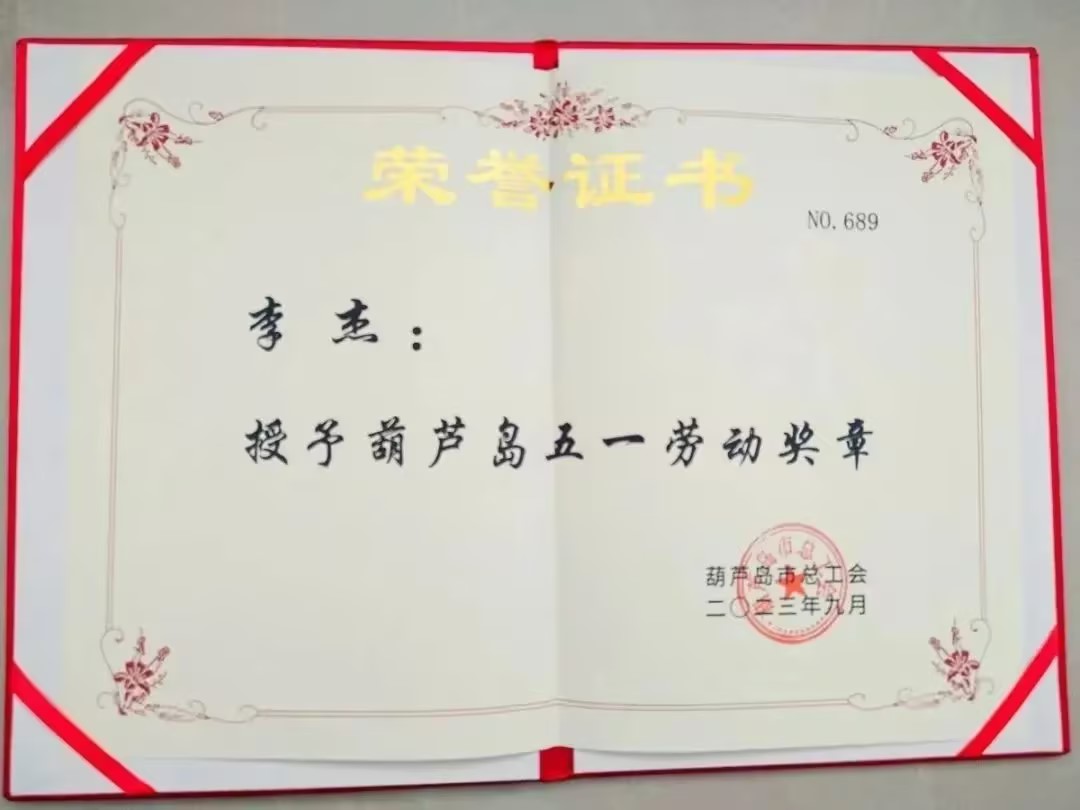 荣誉证书
NO.689
李杰：
授予葫芦岛五一劳动奖章
葫芦岛市总工会
二〇二三年九月